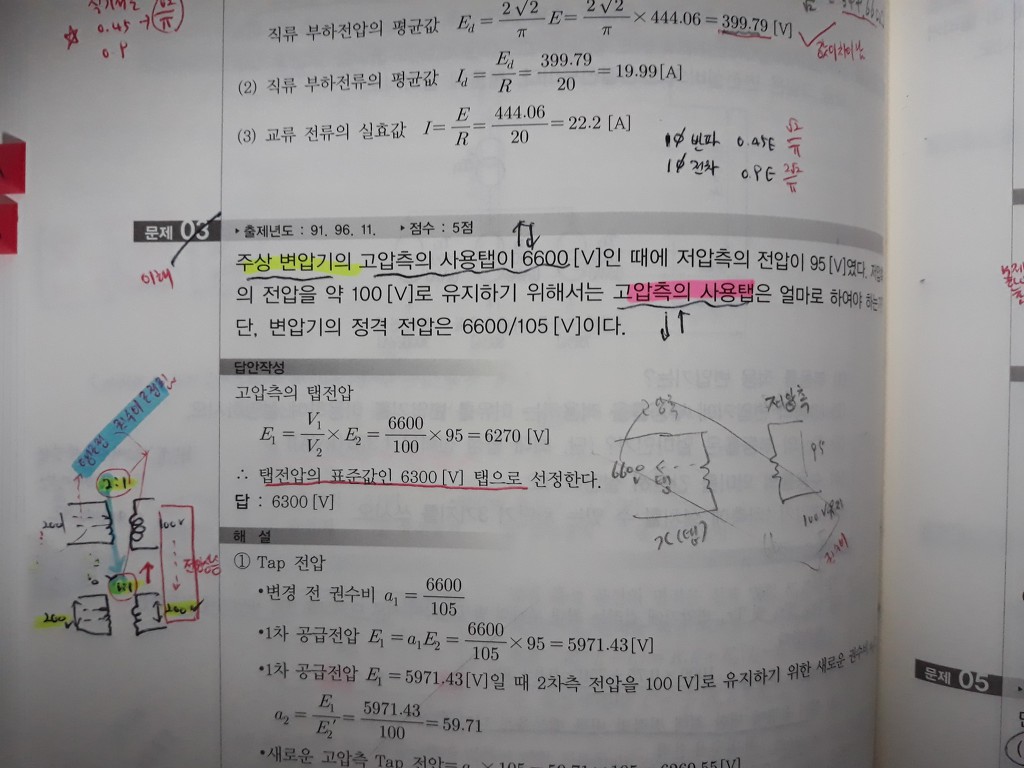 0.45 → √2/π
☆ 0.9
직류 부하전압의 평균값 E_d = 2√2/π E = 2√2/π × 444.06 = 399.79 [V]
(2) 직류 부하전류의 평균값 I_d = E_d/R = 399.79/20 = 19.99 [A]
(3) 교류 전류의 실효값 I = E/R = 444.06/20 = 22.2 [A]
1∅ 반파 0.45E √2/π
1∅ 전파 0.9E 2√2/π
문제 03 ▸출제년도 : 91. 96. 11. ▸점수 : 5점
이해
주상 변압기의 고압측의 사용탭이 6600[V]인 때에 저압측의 전압이 95[V]였다. 저압측
의 전압을 약 100[V]로 유지하기 위해서는 고압측의 사용탭은 얼마로 하여야 하는가?
단, 변압기의 정격 전압은 6600/105 [V]이다.
답안작성
고압측의 탭전압
E₁ = V₁/V₂ × E₂ = 6600/100 × 95 = 6270 [V]
∴ 탭전압의 표준값인 6300[V] 탭으로 선정한다.
답 : 6300[V]
고압측 저압측
6600 탭 95
x(탭) 100V 유지
2:1
100V
200V
해 설
① Tap 전압
•변경 전 권수비 a₁ = 6600/105
•1차 공급전압 E₁ = a₁E₂ = 6600/105 × 95 = 5971.43[V]
•1차 공급전압 E₁ = 5971.43[V]일 때 2차측 전압을 100[V]로 유지하기 위한 새로운 권수비
a₂ = E₁/E₂′ = 5971.43/100 = 59.71
•새로운 고압측 Tap 전압
문제 05